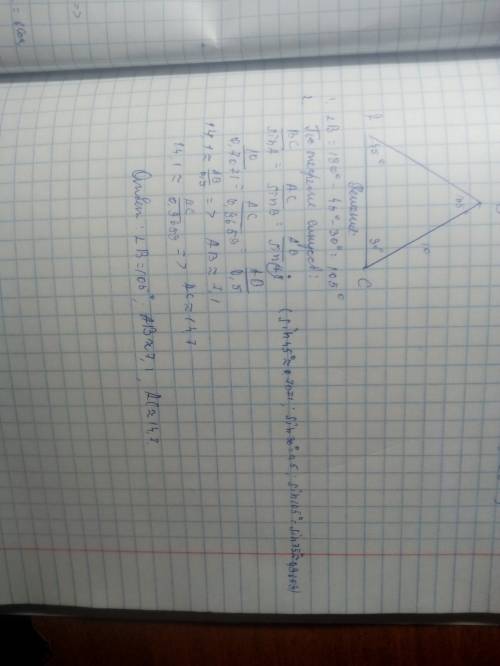 B
10
A 45°
30° C
Решение:
1. ∠B = 180° - 45° - 30° = 105°
2. По теореме синусов:
BC/sinA = AC/sinB = AB/sinC (sin45° ≈ 0,7071; sin30° = 0,5; sin105° = sin75° ≈ 0,9659)
10/0,7071 = AC/0,9659 = AB/0,5
14,1 ≈ AB/0,5 => AB ≈ 7,1
14,1 ≈ AC/0,9659 => AC ≈ 13,7
Ответ: ∠B = 105°; AB ≈ 7,1